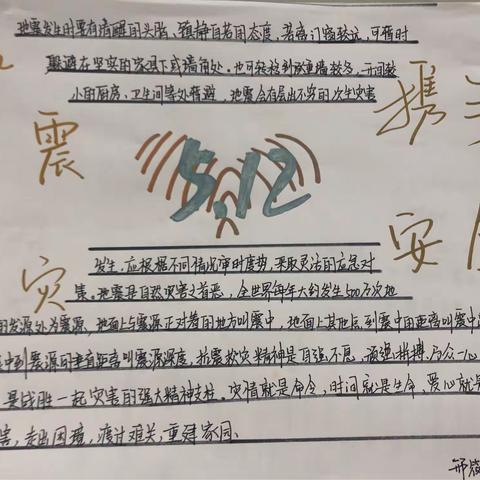 地震发生时要有清醒的头脑，镇静自若的态度，若离门窗较远，可暂时
躲避在坚实的家具下或墙角处，也可转移到承重墙较多、开间较
小的厨房、卫生间等处暂避，地震会有层出不穷的次生灾害
携
震
5.12
安
灾
发生，应根据不同情况审时度势，采取灵活的应急对
策。地震是自然灾害之首恶，全世界每年大约发生500万次地
的发源处为震源，地面上与震源正对着的地方叫震中，地面上其他点到震中的距离叫震中
中到震源的垂直距离叫震源深度，抗震救灾精神是自强不息、顽强拼搏，万众一心
是战胜一起灾害的强大精神支柱。灾情就是命令，时间就是生命，爱心就是
害，走出困境，渡过难关，重建家园、